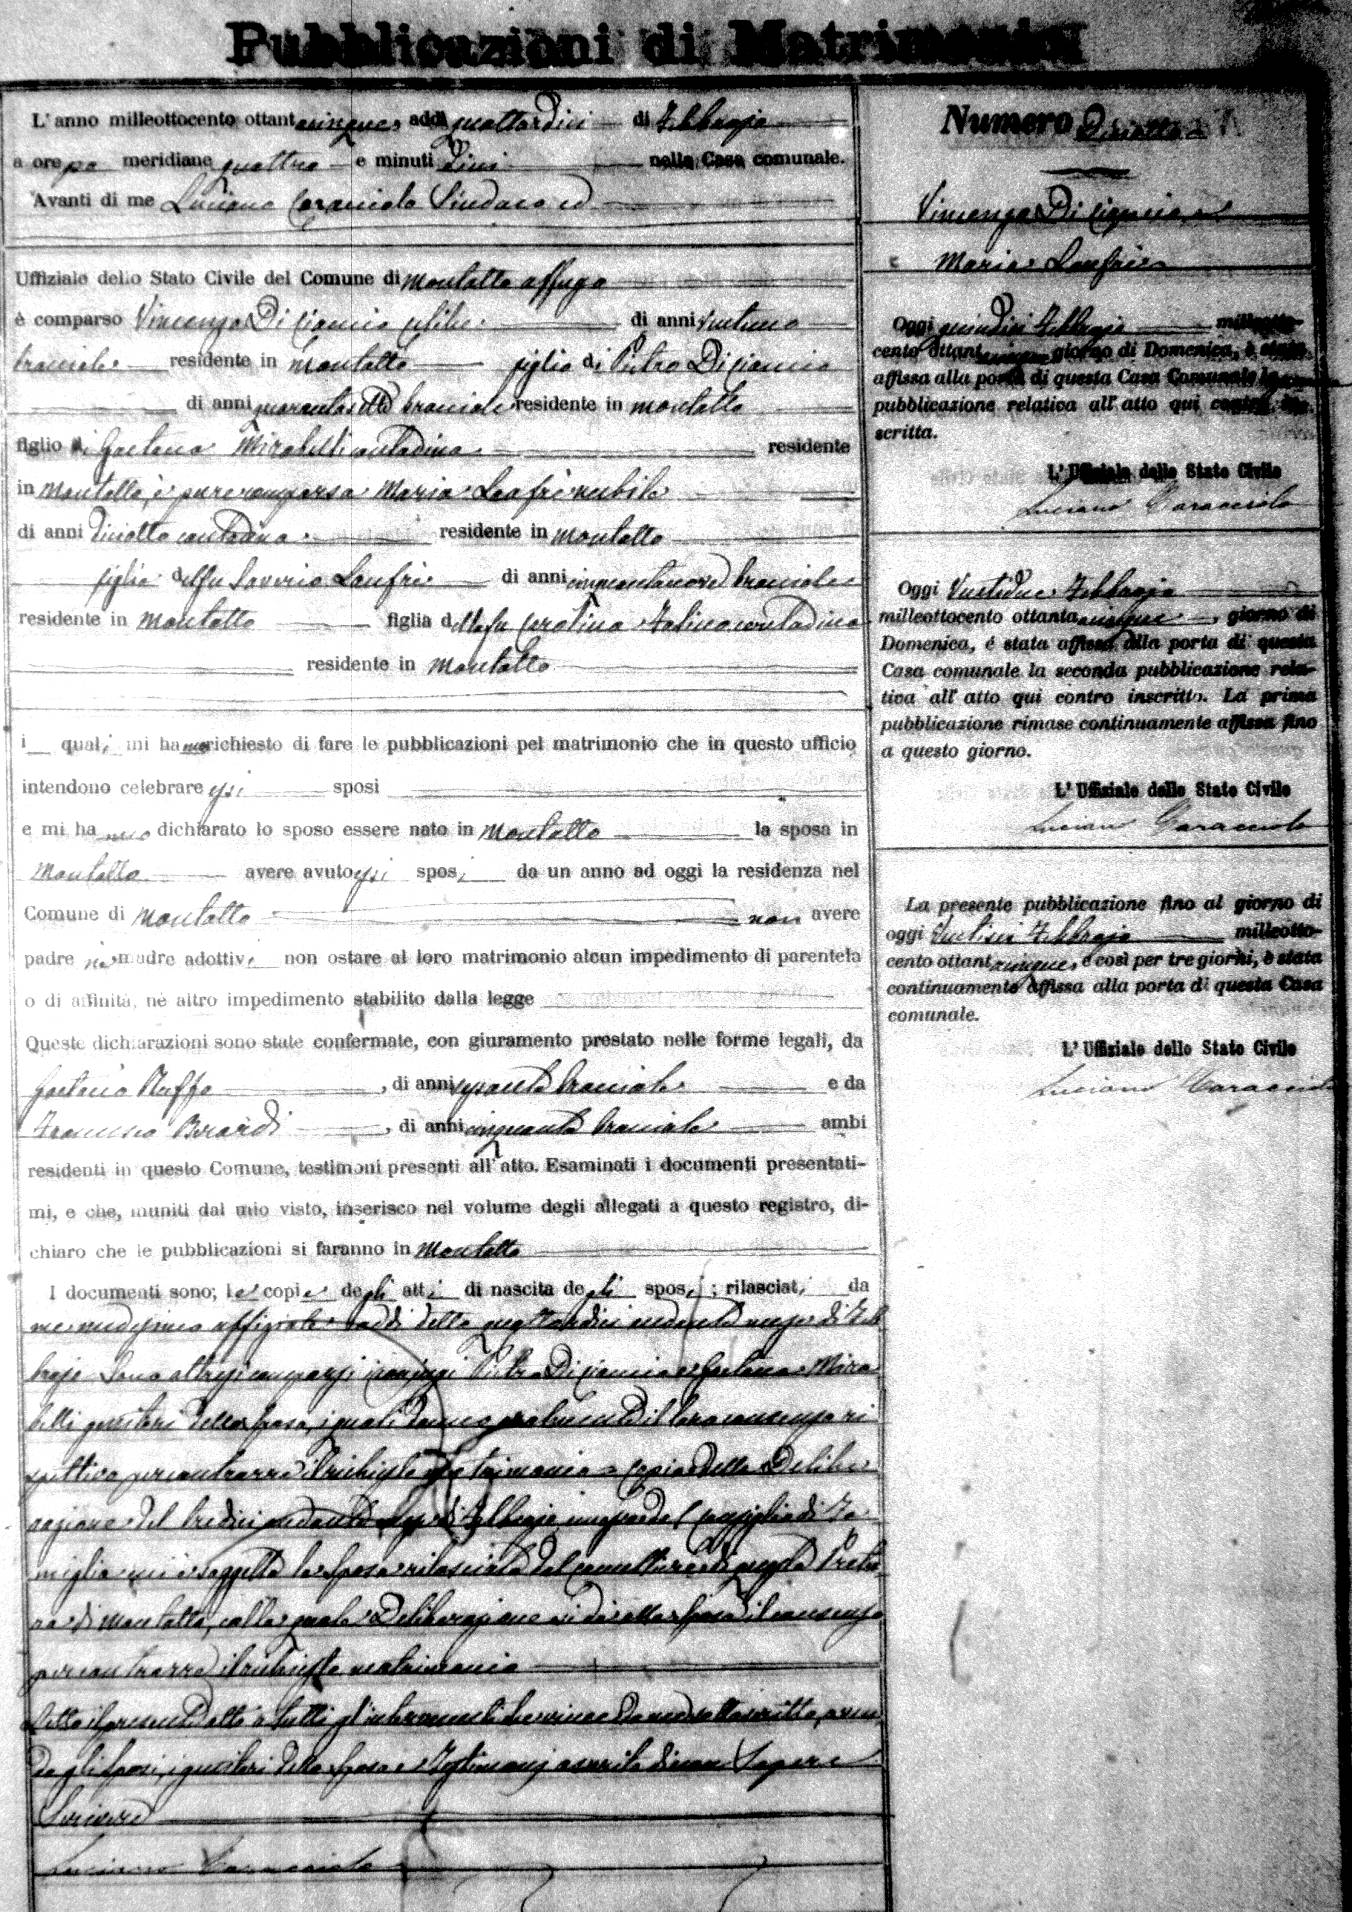 Pubblicazioni di Matrimonio
L'anno milleottocento ottantacinque, addì quattordici di Febbrajo
a ore po meridiane quattro e minuti dieci nella Casa comunale.
Avanti di me Luciano Caracciolo Sindaco ed
Uffiziale dello Stato Civile del Comune di Montalto Uffugo
è comparso Vincenzo Di Ciannio celibe di anni ventuno
bracciale residente in Montalto figlio di Pietro Di Ciannio
di anni quarantasette bracciale residente in Montalto
figlio di Gaetana Mirabelli contadina residente
in Montalto, è pure comparsa Maria Leafrè nubile
di anni diciotto contadina residente in Montalto
figlia del fu Saverio Leafrè di anni cinquantanove bracciale
residente in Montalto figlia della fu Carolina contadina
residente in Montalto
i quali mi hanno richiesto di fare le pubblicazioni pel matrimonio che in questo ufficio
intendono celebrare essi sposi
e mi hanno dichiarato lo sposo essere nato in Montalto la sposa in
Montalto avere avuto essi sposi da un anno ad oggi la residenza nel
Comune di Montalto non avere
padre nè madre adottivi non ostare al loro matrimonio alcun impedimento di parentela
o di affinità, nè altro impedimento stabilito dalla legge
Queste dichiarazioni sono state confermate, con giuramento prestato nelle forme legali, da
Gaetano Ruffo, di anni sessanta bracciale e da
Francesco Berardi, di anni cinquanta bracciale ambi
residenti in questo Comune, testimoni presenti all'atto. Esaminati i documenti presentati-
mi, e che, muniti dal mio visto, inserisco nel volume degli allegati a questo registro, di-
chiaro che le pubblicazioni si faranno in Montalto
I documenti sono; le copie degli atti di nascita degli sposi; rilasciati da
me medesimo uffiziale addì detto quattordici andante mese di Feb
brajo Sono altresì comparsi i conjugi Pietro Di Ciannio e Gaetana Mira
belli genitori dello sposo, i quali danno il loro consenso ri
spettivo per contrarre il richiesto matrimonio = Copia della Delibe
razione del tredici andante mese di Febbrajo Consiglio di Fa
miglia cui è soggetta la sposa rilasciata dal Cancelliere di questa Pretu
ra di Montalto, colla quale Deliberazione si dà alla sposa il consenso
per contrarre il richiesto matrimonio
Letto il presente atto a tutti gl'intervenuti da me sottoscritto, aven
do gli sposi, i genitori dello sposo e Testimonj asserito di non Sapere
Scrivere
Luciano Caracciolo
Numero Diciotto
Vincenzo Di Ciannio e
Maria Leafrè
Oggi quindici Febbrajo milleotto-
cento ottantacinque giorno di Domenica, è stata
affissa alla porta di questa Casa Comunale la
pubblicazione relativa all'atto qui contro in-
scritta.
L'Uffiziale dello Stato Civile
Luciano Caracciolo
Oggi Ventidue Febbrajo
milleottocento ottantacinque, giorno di
Domenica, é stata affissa alla porta di questa
Casa comunale la seconda pubblicazione rela-
tiva all'atto qui contro inscritto. La prima
pubblicazione rimase continuamente affissa fino
a questo giorno.
L'Uffiziale dello Stato Civile
Luciano Caracciolo
La presente pubblicazione fino al giorno di
oggi Ventisei Febbrajo milleotto-
cento ottantacinque, e così per tre giorni, è stata
continuamente affissa alla porta di questa Casa
comunale.
L'Uffiziale dello Stato Civile
Luciano Caracciolo